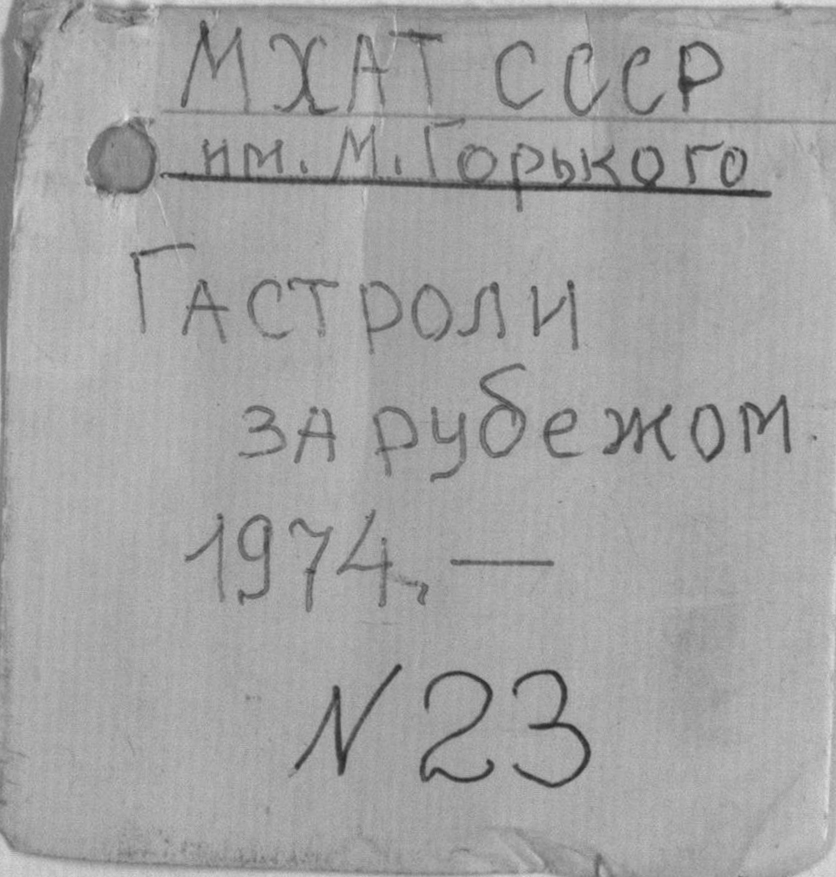 МХАТ СССР
им. М. Горького
Гастроли
за рубежом.
1974, —
N 23